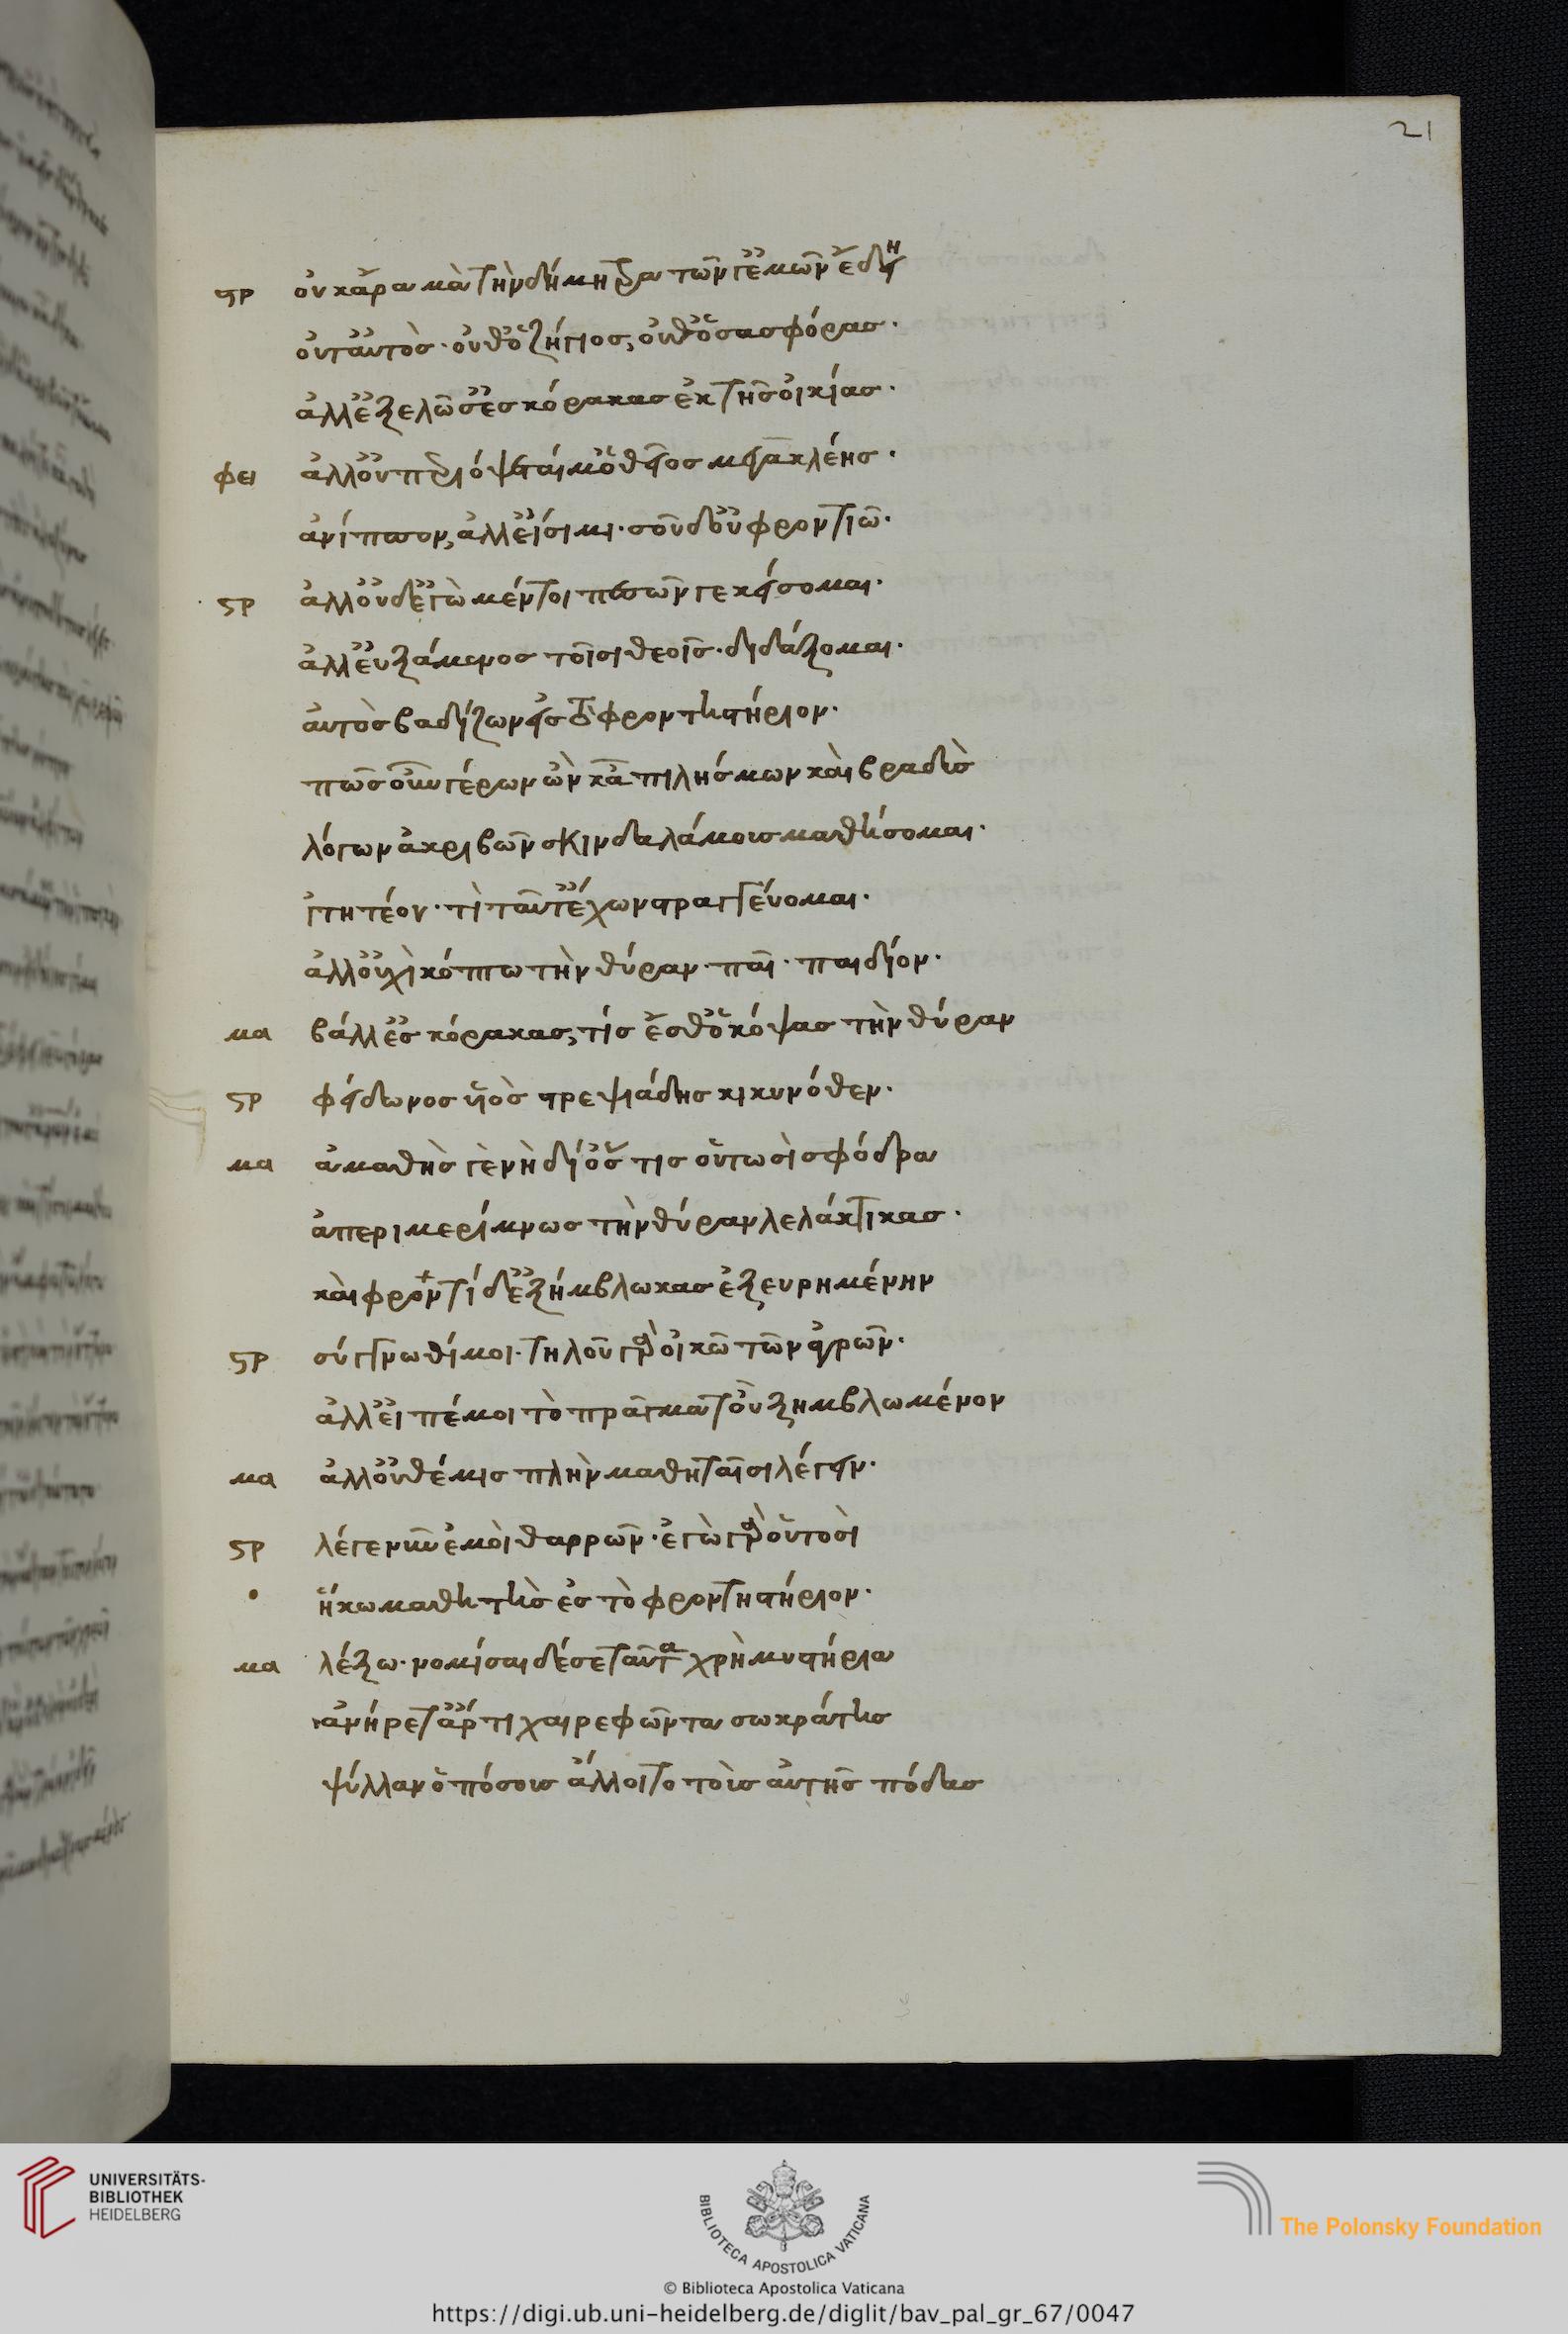 21
στρ οὐκ ἄρα μὰ τὴν δήμητρα τῶν γ' ἐμῶν ἔδει η
οὔτ' αὐτὸς· οὔθ' ὁ ζύγιος, οὔθ' ὁ σαμφόρας·
ἀλλ' ἐξελῶ σ' ἐς κόρακας ἐκ τῆς οἰκίας·
φει ἀλλ' οὐ περιόψεταί μ' ὁ θεῖος μεγακλέης·
ἀνίππον, ἀλλ' εἴσιμι· σοῦ δ' οὐ φροντιῶ·
στρ ἀλλ' οὐδ' ἐγὼ μέντοι πεσών γε κείσομαι·
ἀλλ' εὐξάμενος τοῖσι θεοῖς· διδάξομαι·
αὐτὸς βαδίζων εἰς τὸ φροντιστήριον·
πῶς οὖν γέρων ὢν κἀπιλήσμων καὶ βραδὺς
λόγων ἀκριβῶν σκινδαλάμους μαθήσομαι·
ἰτητέον· τί ταῦτ' ἔχων στραγγεύομαι·
ἀλλ' οὐχὶ κόπτω τὴν θύραν· παῖ· παιδίον·
μα βάλλ' ἐς κόρακας, τίς ἔσθ' ὁ κόψας τὴν θύραν
στρ φείδωνος υἱὸς στρεψιάδης κικυνόθεν·
μα ἀμαθής γε νὴ δί' ὅστις οὑτωσὶ σφόδρα
ἀπεριμερίμνως τὴν θύραν λελάκτικας·
καὶ φροντίδ' ἐξήμβλωκας ἐξευρημένην
στρ σύγγνωθί μοι· τηλοῦ γὰρ οἰκῶ τῶν ἀγρῶν·
ἀλλ' εἰπέ μοι τὸ πρᾶγμα τοὐξημβλωμένον
μα ἀλλ' οὐ θέμις πλὴν μαθηταῖσι λέγειν·
στρ λέγε νῦν ἐμοὶ θαρρῶν· ἐγὼ γὰρ οὑτοσὶ
ἥκω μαθητὴς ἐς τὸ φροντιστήριον·
μα λέξω· νομίσαι δέ σε ταῦτα χρὴ μυστήρια
ἀνήρετ' ἄρτι χαιρεφῶντα σωκράτης
ψύλλαν ὁπόσους ἄλλοιτο τοὺς αὑτῆς πόδας
UNIVERSITÄTS-
BIBLIOTHEK
HEIDELBERG
BIBLIOTECA APOSTOLICA VATICANA
The Polonsky Foundation
© Biblioteca Apostolica Vaticana
https://digi.ub.uni-heidelberg.de/diglit/bav_pal_gr_67/0047